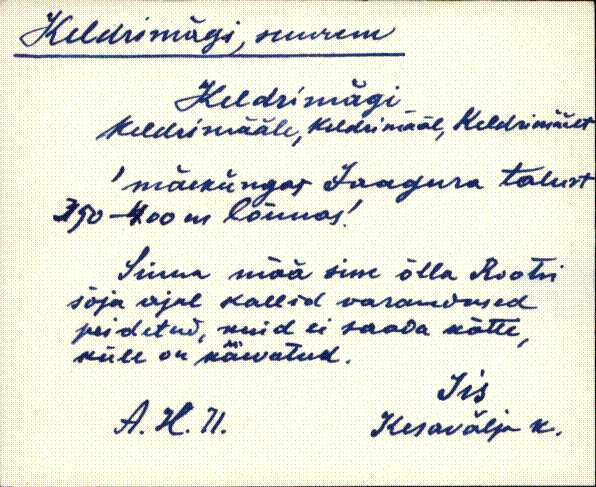 Keldrimägi, suurem
Keldrimägi
Keldrimääle, Keldrimääl, Keldrimäelt
'mäeküngas Jaagura talust
350-400 m lõunas'.
Sinna mää sisse õlla Rootsi
sõja ajal kallid varandused
peidetud, kuid ei saada kätte,
külle on käevatud.
Iis
A. H. 71. Kesavälja k.